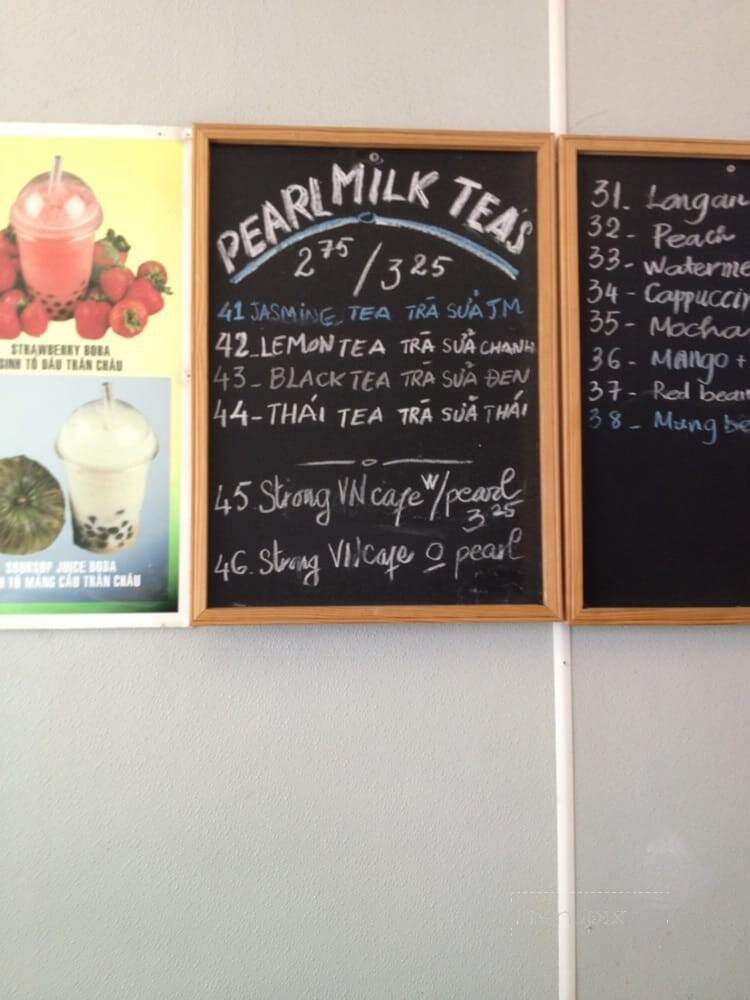 STRAWBERRY BOBA
SINH TỐ DÂU TRÂN CHÂU
SOURSOP JUICE BOBA
TỐ MÃNG CẦU TRÂN CHÂU
PEARL MILK TEA'S
2 75 / 3 25
41 JASMINE TEA TRÀ SỮA JM
42-LEMON TEA TRÀ SỮA CHANH
43-BLACK TEA TRÀ SỮA ĐEN
44-THÁI TEA TRÀ SỮA THÁI
45. Strong VN cafe w/pearl
3 25
46. Strong VN cafe O pearl
31. Longan
32- Peach
33- Waterme
34- Cappuccin
35- Mocha
36- Mango +
37- Red bean
38- Mung be